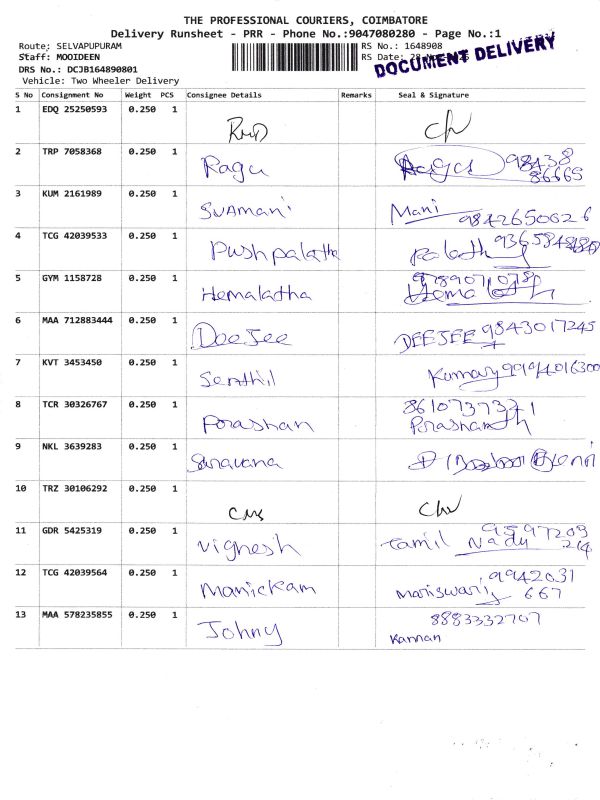 THE PROFESSIONAL COURIERS, COIMBATORE
Delivery Runsheet - PRR - Phone No.:9047080280 - Page No.:1
Route; SELVAPUPURAM RS No.: 1648908
Staff: MOOIDEEN RS Date:
DOCUMENT DELIVERY
DRS No.: DCJB164890801
Vehicle: Two Wheeler Delivery
S No Consignment No Weight PCS Consignee Details Remarks Seal & Signature
1 EDQ 25250593 0.250 1
2 TRP 7058368 0.250 1 Ragu Ragu 98438
86665
3 KUM 2161989 0.250 1 SUAmani Mani 9842650626
4 TCG 42039533 0.250 1 Pushpalatha
5 GYM 1158728 0.250 1 Hemalatha Hemalatha
6 MAA 712883444 0.250 1 DeeJee DEEJEE 9843017245
7 KVT 3453450 0.250 1 Senthil Kumar
8 TCR 30326767 0.250 1 Porashan 8610737371
Porashanth
9 NKL 3639283 0.250 1 Saravana
10 TRZ 30106292 0.250 1
11 GDR 5425319 0.250 1 Vighesh Tamil Nadu 9597203
214
12 TCG 42039564 0.250 1 Manickam Mariswari 9942031
667
13 MAA 578235855 0.250 1 Johny 8883332707
Kannan